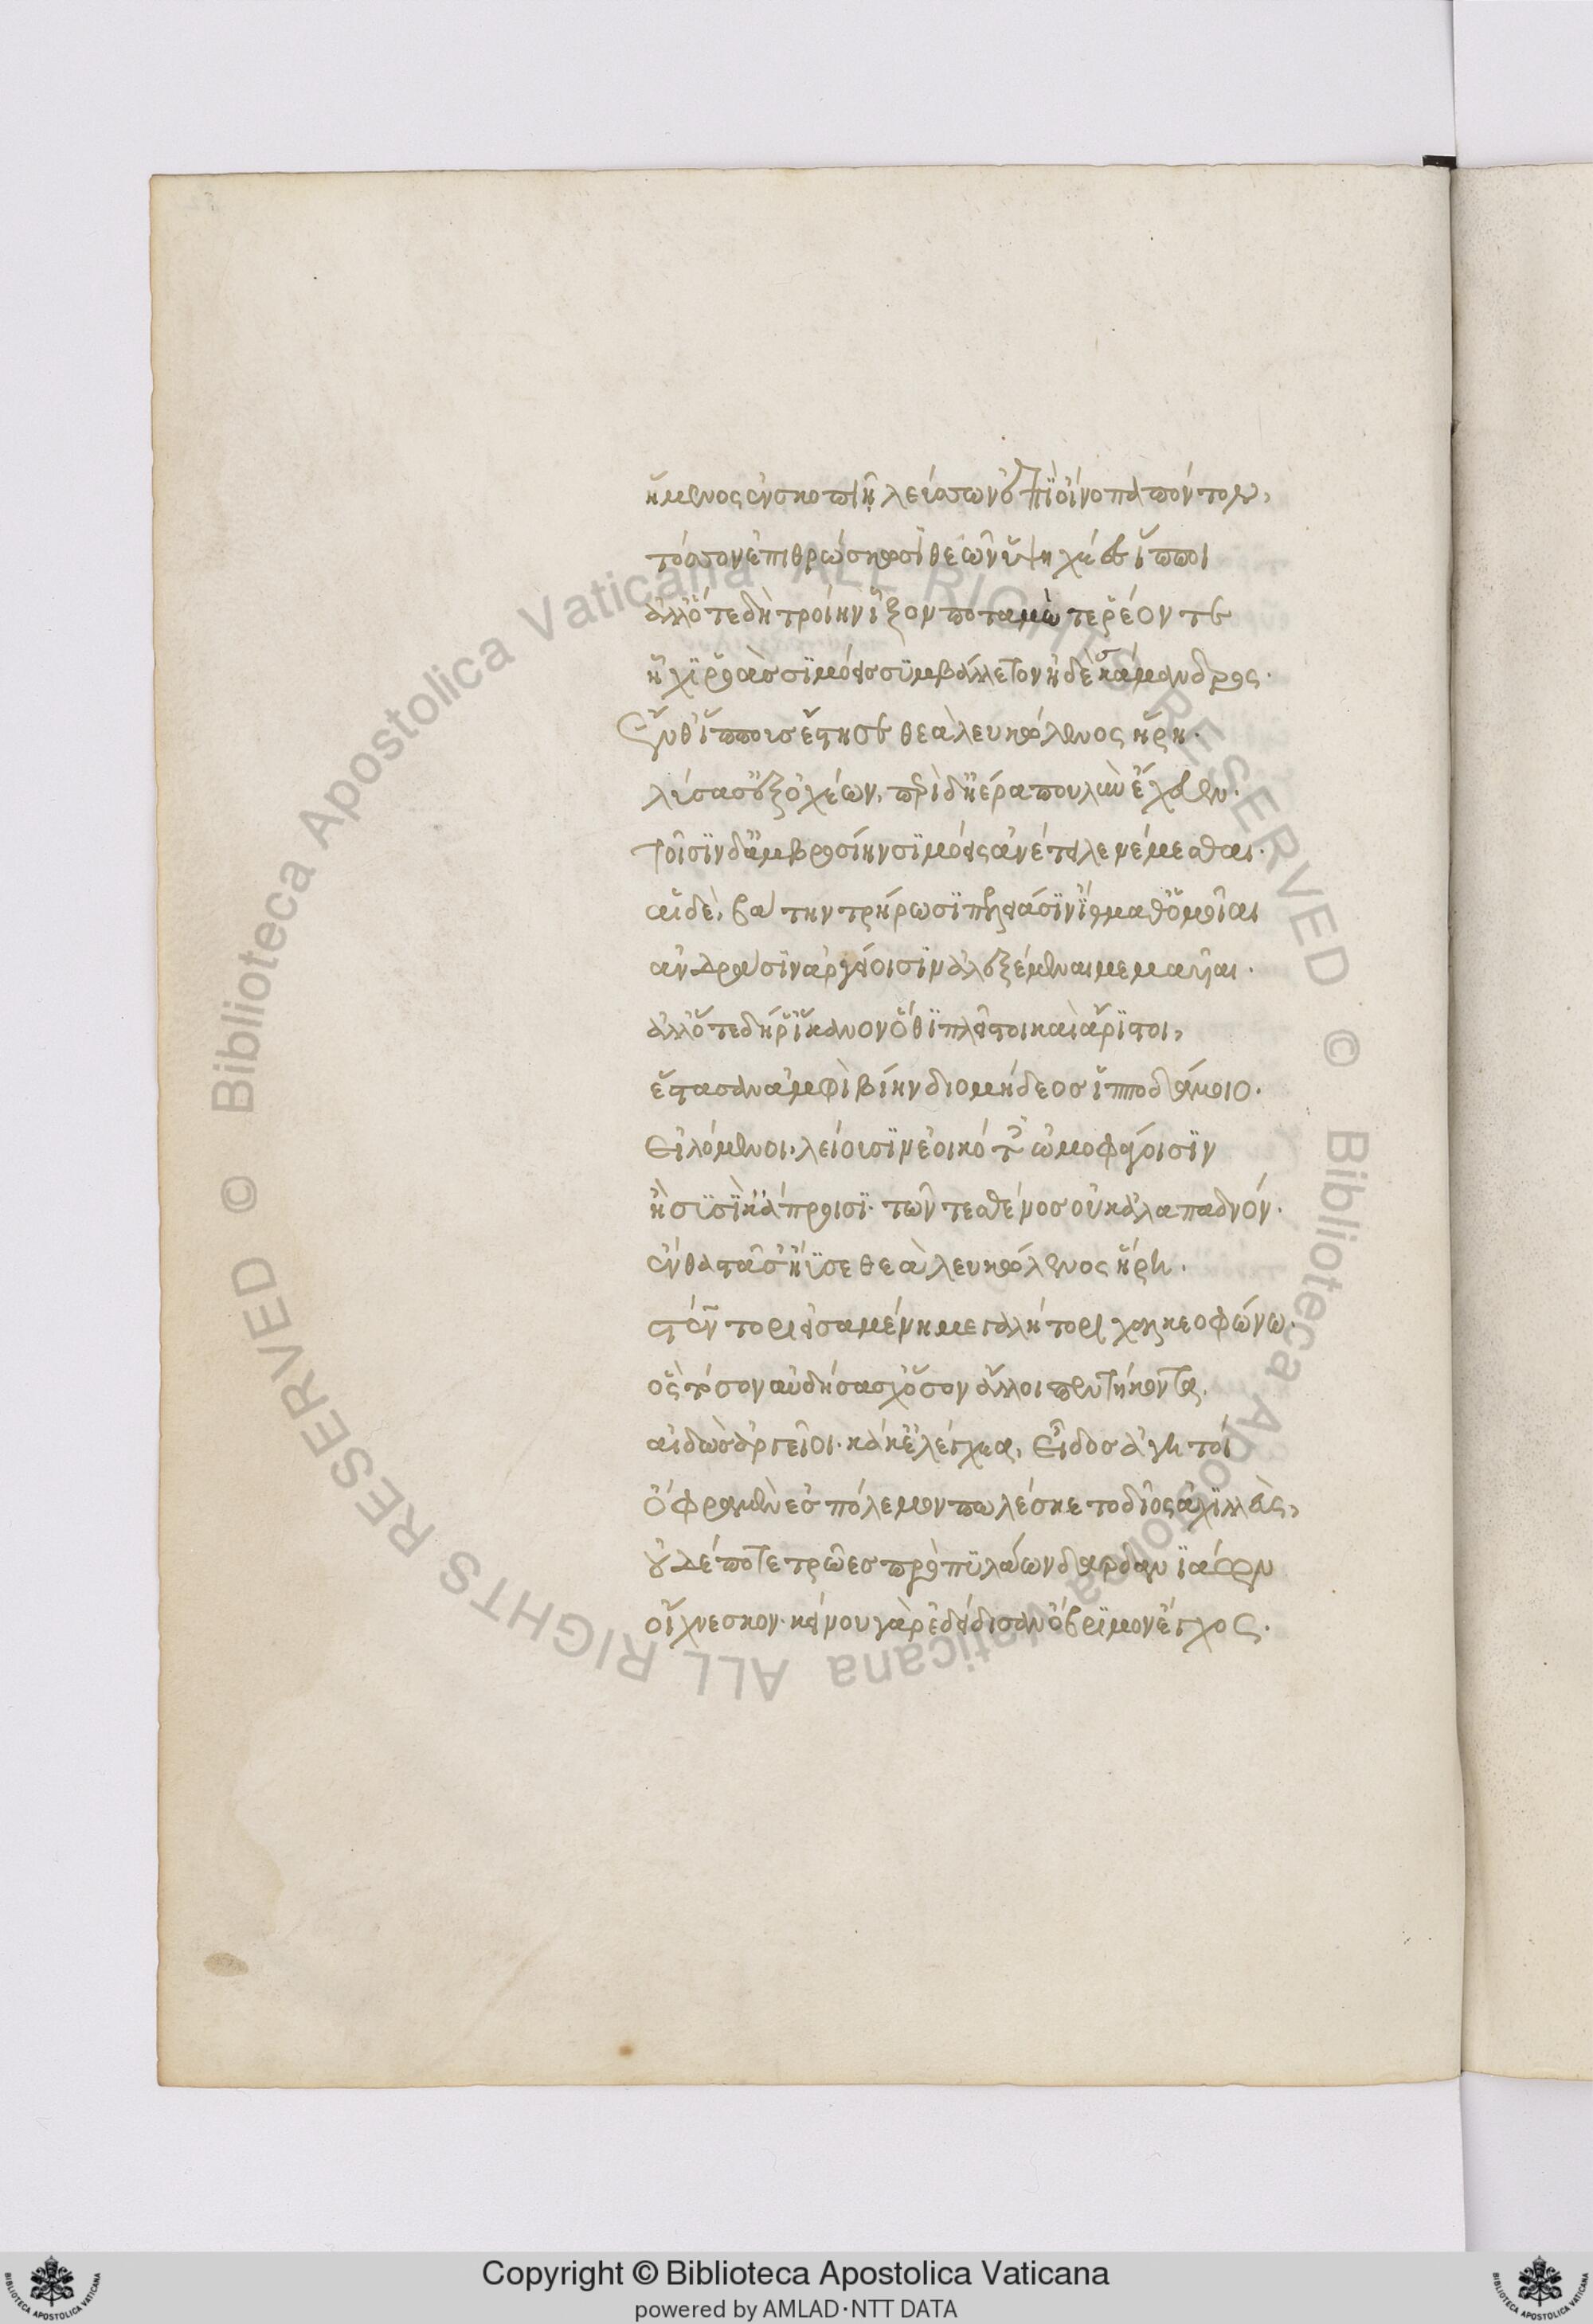 ἥμενος ἐν σκοπιῇ λεύσσων ἐπὶ οἴνοπα πόντον,
τόσσον ἐπιθρώσκουσι θεῶν ὑψηχέες ἵπποι
ἀλλ' ὅτε δὴ τροίην ἷξον ποταμώ τε ῥέοντε
ἧχι ῥοὰς σιμόεις συμβάλλετον ἠδὲ σκάμανδρος.
ἔνθ' ἵππους ἔστησε θεὰ λευκώλενος ἥρη.
λύσασ' ἐξ ὀχέων, περὶ δ' ἠέρα πουλὺν ἔχευεν.
τοῖσιν δ' ἀμβροσίην σιμόεις ἀνέτειλε νέμεσθαι.
αἱ δὲ, βάτην τρήρωσι πελειάσιν ἴθμαθ' ὁμοῖαι
ἀνδράσιν ἀργείοισιν ἀλεξέμεναι μεμαυῖαι.
ἀλλ' ὅτε δή ῥ' ἵκανον ὅθι πλεῖστοι καὶ ἄριστοι,
ἕστασαν ἀμφὶ βίην διομήδεος ἱπποδάμοιο.
εἰλόμενοι, λείουσιν ἐοικότες ὠμοφάγοισιν
ἢ συσὶ κάπροισι. τῶν τε σθένος οὐκ ἀλαπαδνόν.
ἔνθα στᾶσ' ἤϋσε θεὰ λευκώλενος ἥρη.
στέντορι εἰσαμένη μεγαλήτορι χαλκεοφώνω.
ὃς τόσον αὐδήσασχ' ὅσον ἄλλοι πεντήκοντα.
αἰδὼς ἀργεῖοι. κάκ' ἐλέγχεα, εἶδος ἀγητοί
ὄφρα μὲν ἐς πόλεμον πωλέσκετο δῖος ἀχιλλεὺς,
οὐδέποτε τρῶες πρὸ πυλάων δαρδανιάων
οἴχνεσκον. κείνου γὰρ ἐδείδισαν ὄβριμον ἔγχος.
Copyright © Biblioteca Apostolica Vaticana
powered by AMLAD·NTT DATA